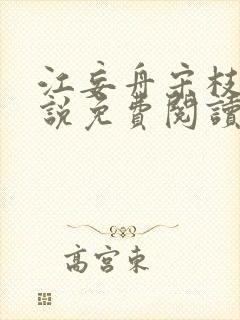 江妄舟宋枝
說免費閱讀
高宮東